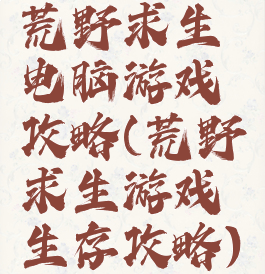 荒野求生
电脑游戏
攻略(荒野
求生游戏
生存攻略)